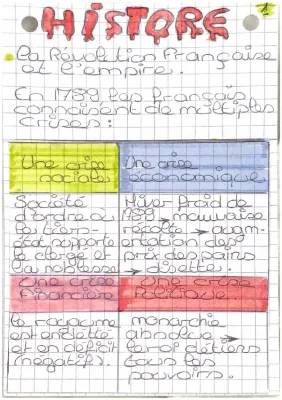 HISTORE
1
La Révolution Française
et l'empire.
En 1789 les français
connaisent de multiples
crises :
Une crise
sociale
Une crise
économique
Société
d'ordre ou
le tiers-
état supporte
le clergé et
la noblesse
Hiver froid de
1789 → mauvaise
récolte → augm-
entation des
prix des pains
→ disette.
Une crise
financière
Une crise
Politique
le royaume
est endetté
et en déficit
(négatifs).
monarchie
absolue →
le roi détiens
tous les
pouvoirs.